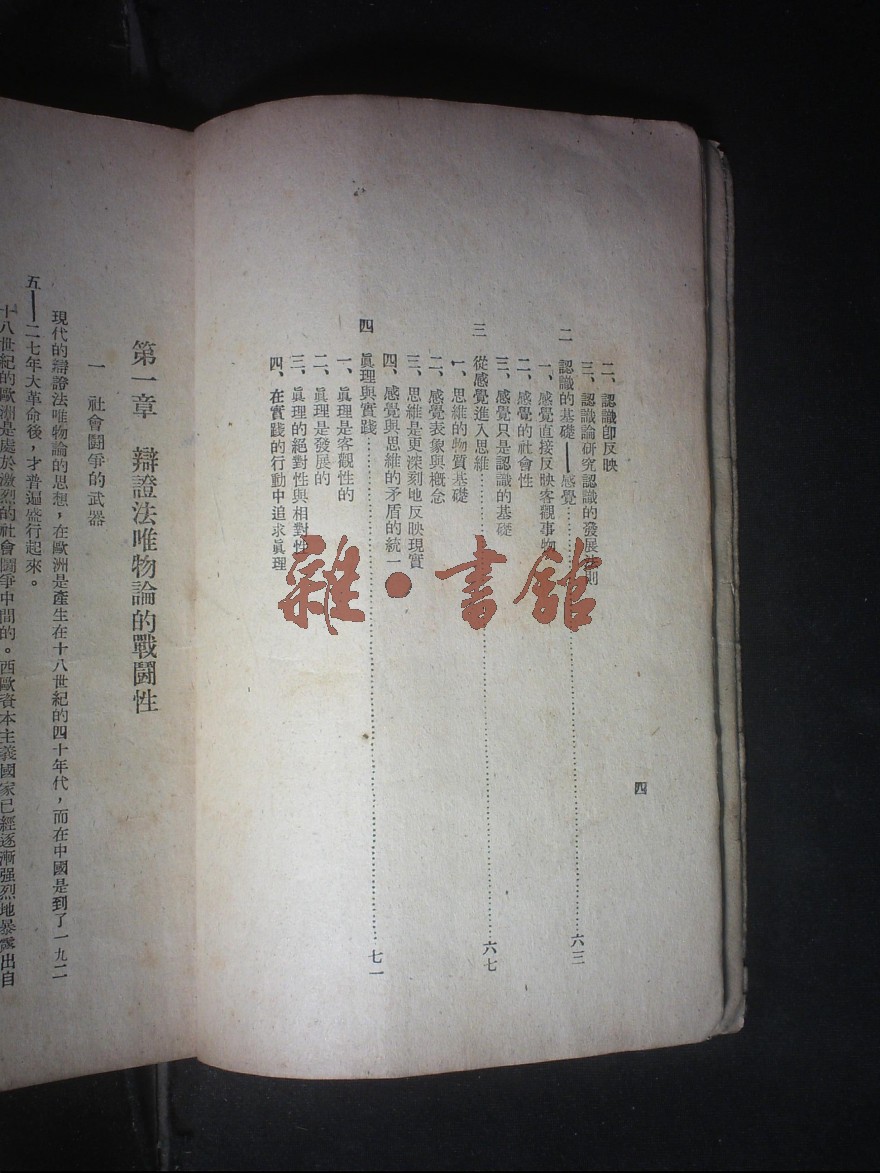 二、認識卽反映
三、認識論研究認識的發展法則
二　認識的基礎——感覺……六三
一、感覺直接反映客觀事物
二、感覺的社會性
三、感覺只是認識的基礎
三　從感覺進入思維……六七
一、思維的物質基礎
二、感覺表象與概念
三、思維是更深刻地反映現實
四、感覺與思維的矛盾的統一
四　眞理與實踐……七一
一、眞理是客觀性的
二、眞理是發展的
三、眞理的絕對性與相對性
四、在實踐的行動中追求眞理
四
雜·書館
第一章　辯證法唯物論的戰鬪性
一　社會鬪爭的武器
現代的辯證法唯物論的思想，在歐洲是產生在十八世紀的四十年代，而在中國是到了一九二
五——二七年大革命後，才普遍盛行起來。
十八世紀的歐洲是處於激烈的社會鬪爭中間的。西歐資本主義國家已經逐漸强烈地暴露出自